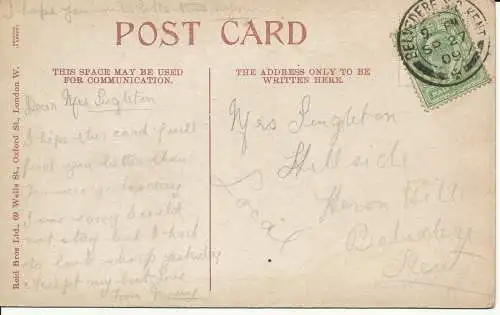 I hope you
POST CARD
THIS SPACE MAY BE USED
FOR COMMUNICATION.
THE ADDRESS ONLY TO BE
WRITTEN HERE.
BELVEDERE S.O. KENT
SP 2
09
Reid Bros Ltd., 69 Wells St., Oxford St., London W.
Dear Mrs Singleton
I hope this card will
find you better than
I was sorry I could
not stay but I had
to look sharp yesterday
Accept my best love
from
Mrs Singleton
Hillside
Heron Hill
Belvedere
Kent
Local